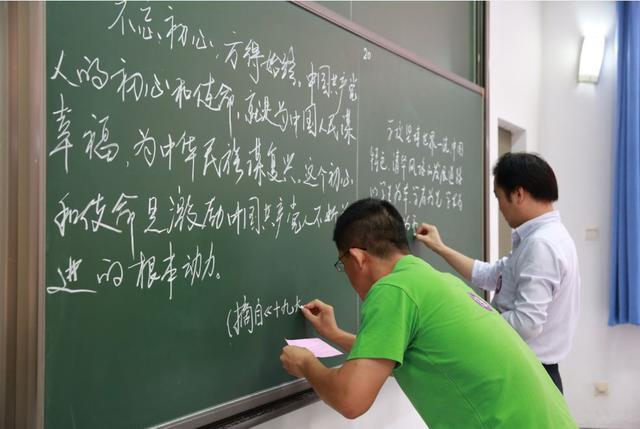 不忘初心,方得始终。中国共产党
人的初心和使命,就是为中国人民谋
幸福,为中华民族谋复兴。这个初心
和使命是激励中国共产党人不断
进的根本动力。
(摘自《十九大
20
坚持世界一流、中国
特色、清华风格的发展道路